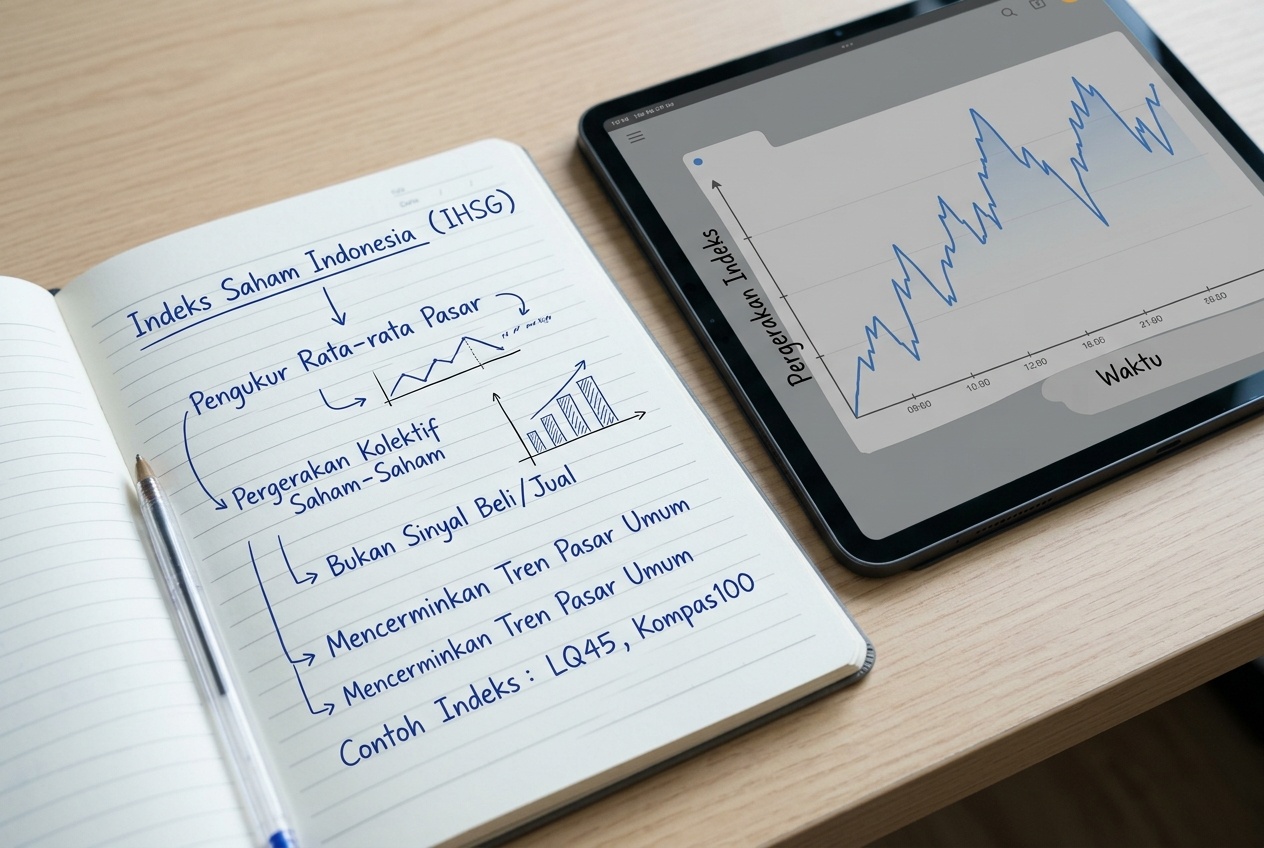 Indeks Saham Indonesia (IHSG)
Pengukur Rata-rata Pasar
Pergerakan Kolektif
Saham-Saham
Bukan Sinyal Beli/Jual
Mencerminkan Tren Pasar Umum
Mencerminkan Tren Pasar Umum
Contoh Indeks: LQ45, Kompas100
Pergerakan Indeks
Waktu